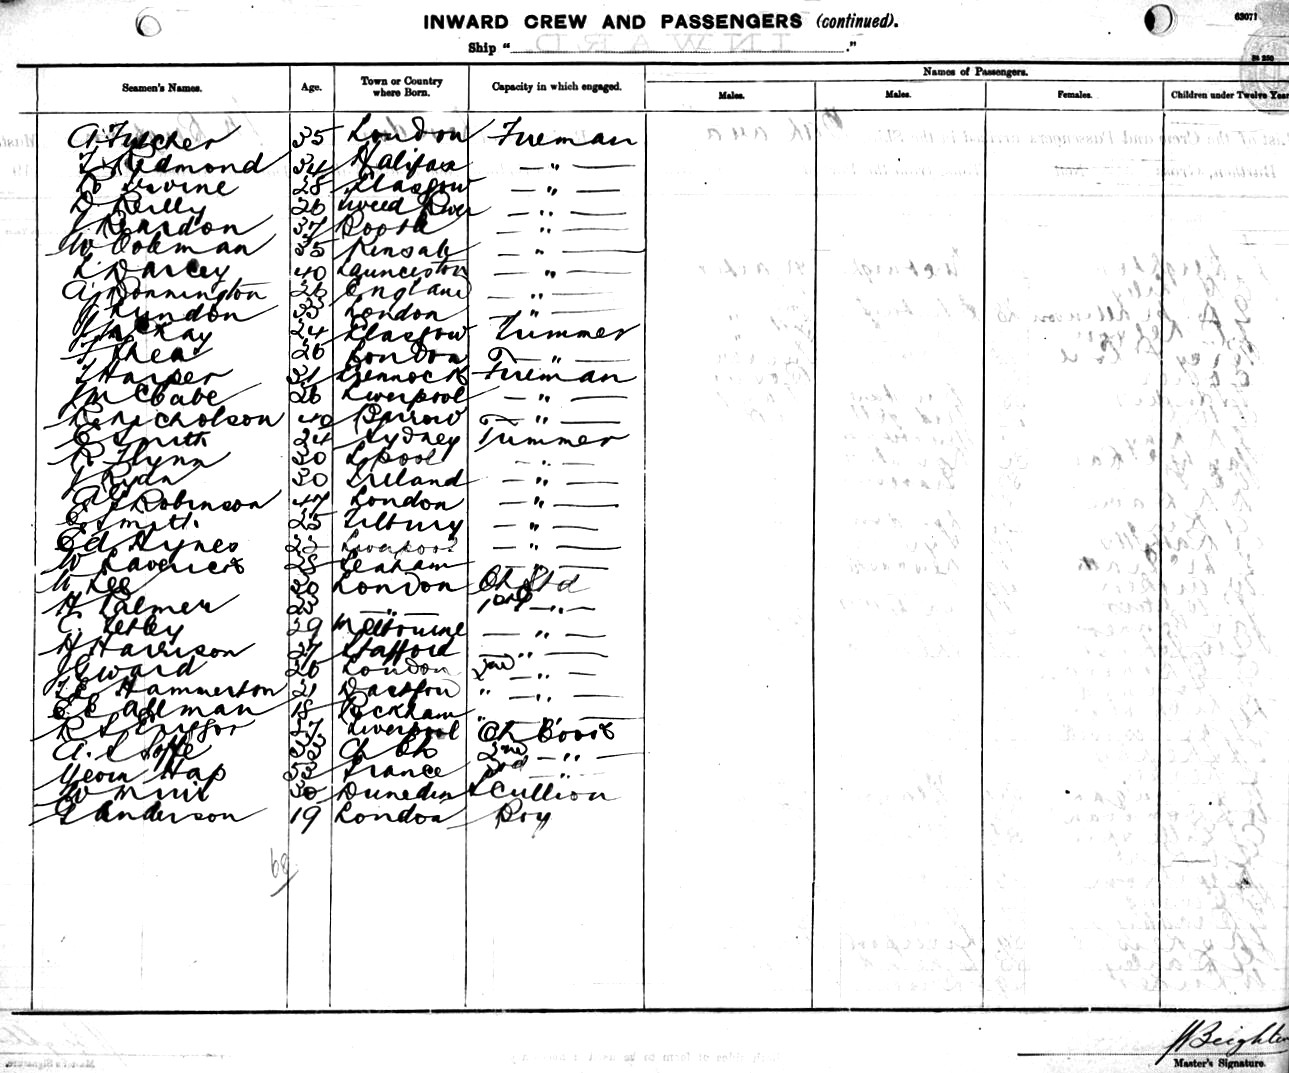 INWARD CREW AND PASSENGERS (continued).
63071
Ship " "
Seamen's Names. Age. Town or Country where Born. Capacity in which engaged. Names of Passengers.
Males. Males. Females. Children under Twelve Year
A Fulcher 35 London Fireman
Redmond 34 Halifax — " —
Irvine 28 Glasgow — " —
D Reilly 26 Tweed River — " —
J Reardon 37 — " —
W Coleman 35 Kinsale — " —
L Darcey 40 Launceston — " —
A Bonnington 26 England — " —
J Lundon 33 London — " —
J McKay 24 Glasgow Trimmer
J Shea 26 London — " —
J Harper 21 Greenock Fireman
J McCabe 26 Liverpool — " —
R Nicholson 40 Barrow — " —
E Smith 24 Sydney Trimmer
R Flynn 30 Lpool — " —
J Ryan 30 Ireland — " —
A Robinson 47 London — " —
E Smith 25 Tilbury — " —
Ed Hynes 22 Liverpool — " —
W Laverick 28 Seaham — " —
W Lee 30 London Ch Std
H Palmer — " — — " —
C. Letby 29 Melbourne — " —
H Harrison 27 Stafford — " —
J G Ward 26 London 2nd — " —
Hammerton 21 " — " —
E E Allman 18 Peckham "
37 Liverpool Ch Cook
A. 2nd — " —
Hap 33 France 3rd — " —
W Muir 30 Dunedin Scullion
G Anderson 19 London Boy
69
J Beighton
Master's Signature.